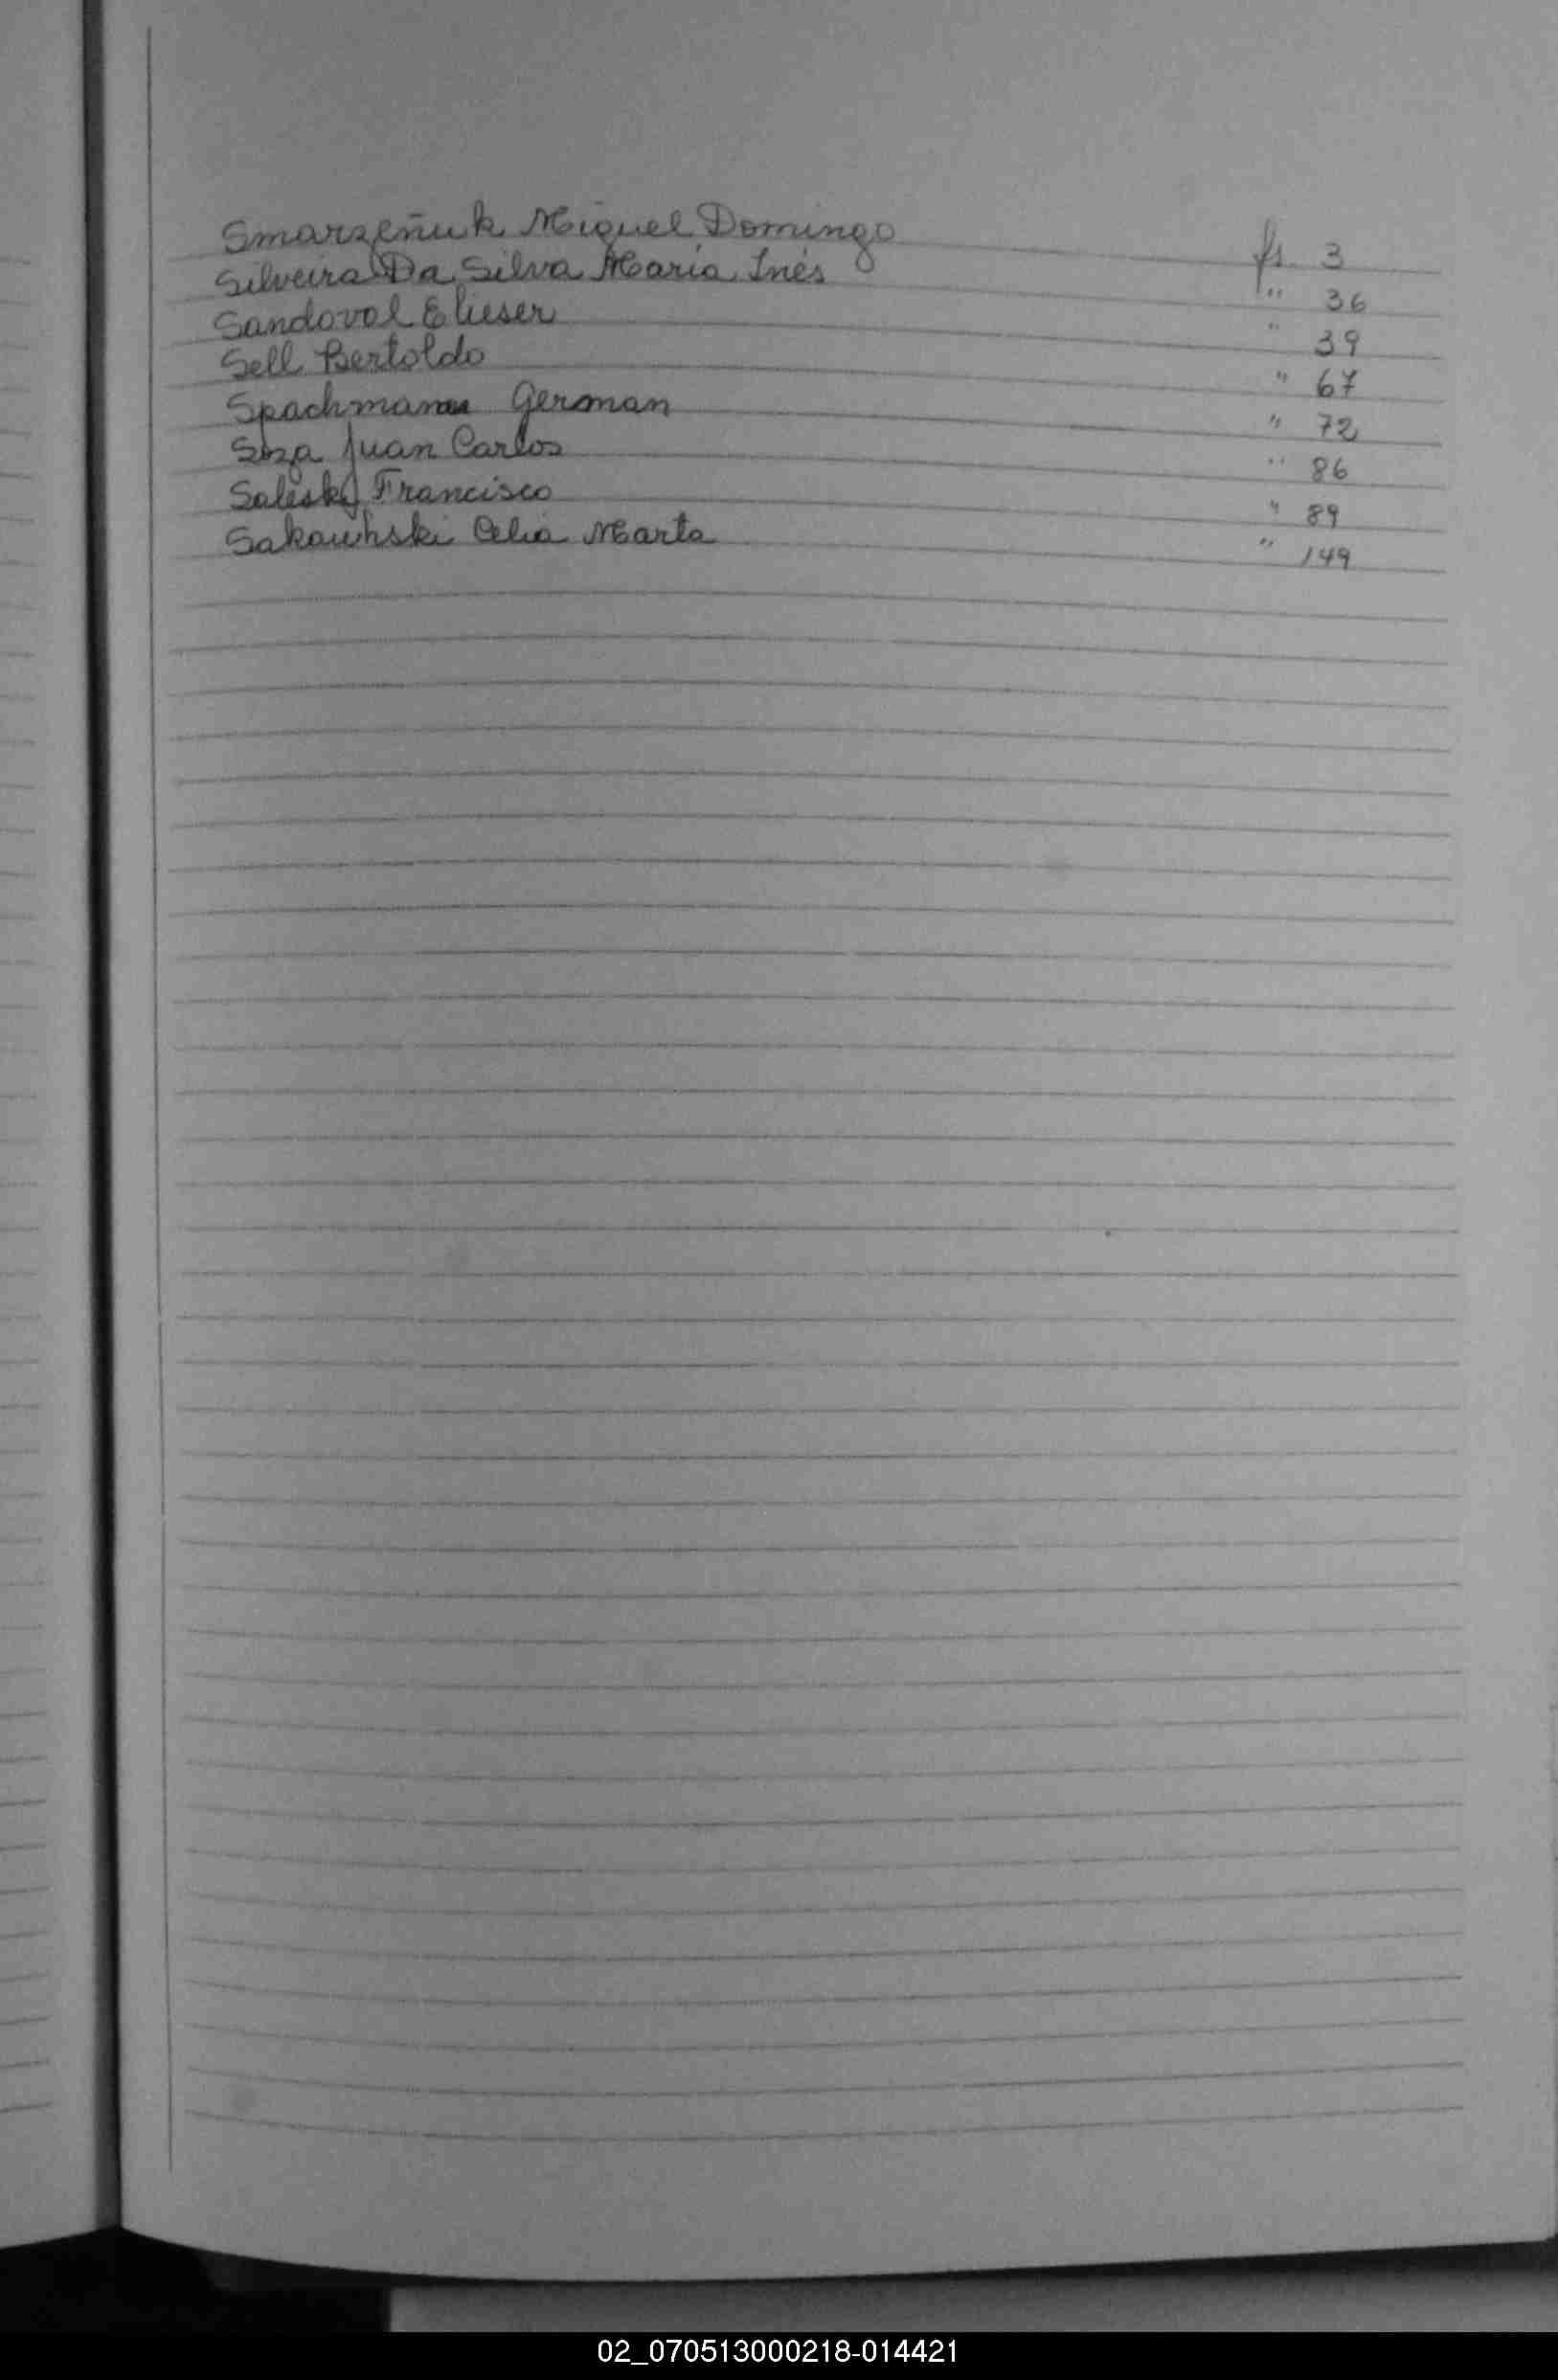 Smarzeñuk Miguel Domingo fs 3
Silveira Da Silva María Inés " 36
Sandoval Elieser " 39
Sell Bertoldo " 67
Spachmann German " 72
Juan Carlos " 86
Saleski Francisco " 89
Celia Marta " 149
02_070513000218-014421